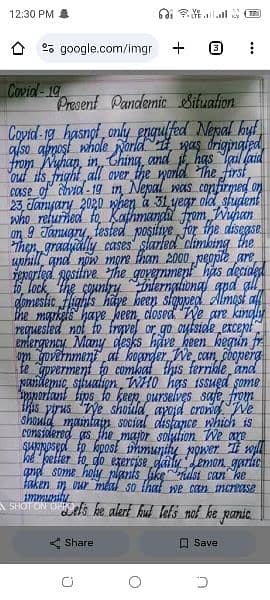 12:30 PM
google.com/imgr
3
Covid-19
Present Pandemic Situation
Covid-19 hasnot only engulfed Nepal but
also almost whole world. It was originated
from Wuhan, in China and it has laid
out its fright all over the world. The first
case of Covid-19 in Nepal was confirmed on
23 January 2020 when a 31 year old student
who returned to Kathmandu from Wuhan
on 9 January tested positive for the disease.
Then gradually cases started climbing the
uphill and now more than 2000 people are
reported positive. The government has decided
to lock the country. International and all
domestic flights have been stopped. Almost all
the markets have been closed. We are kindly
requested not to travel or go outside except
emergency. Many desks have been begun fr
om government at boarder. We can cooperg
te goverment to combat this terrible and
pandemic situation. WHO has issued some
important tips to keep ourselves safe from
this virus. We should avoid crowd. We
should maintain social distance which is
considered as the major solution. We are
supposed to boost immunity power. It will
be better to do exercise daily. Lemon, garlic
and some holy plants like Tulsi can be
taken in our meal so that we can increase
immunity.
SHOT ON OPPO
Let's be alert but let's not be panic
Share
Save